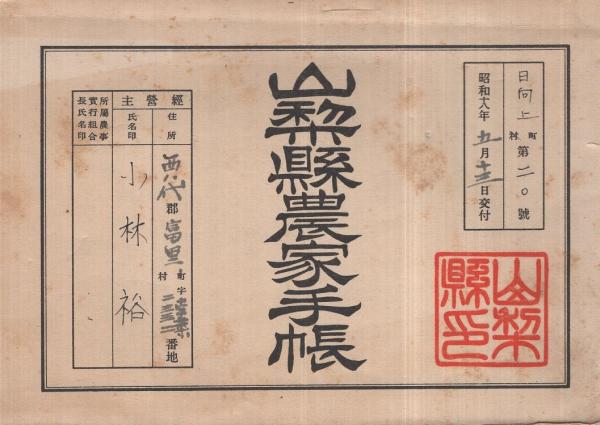 日向上 町村 第二〇號
昭和十八年五月十三日交付
山梨縣印
山梨縣農家手帳
經營主
住所
西八代郡富里町村字
二三三二番地
氏名印
小林裕
所屬農事
實行組合
長氏名印